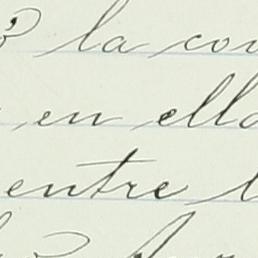 la con
en ella
entre l